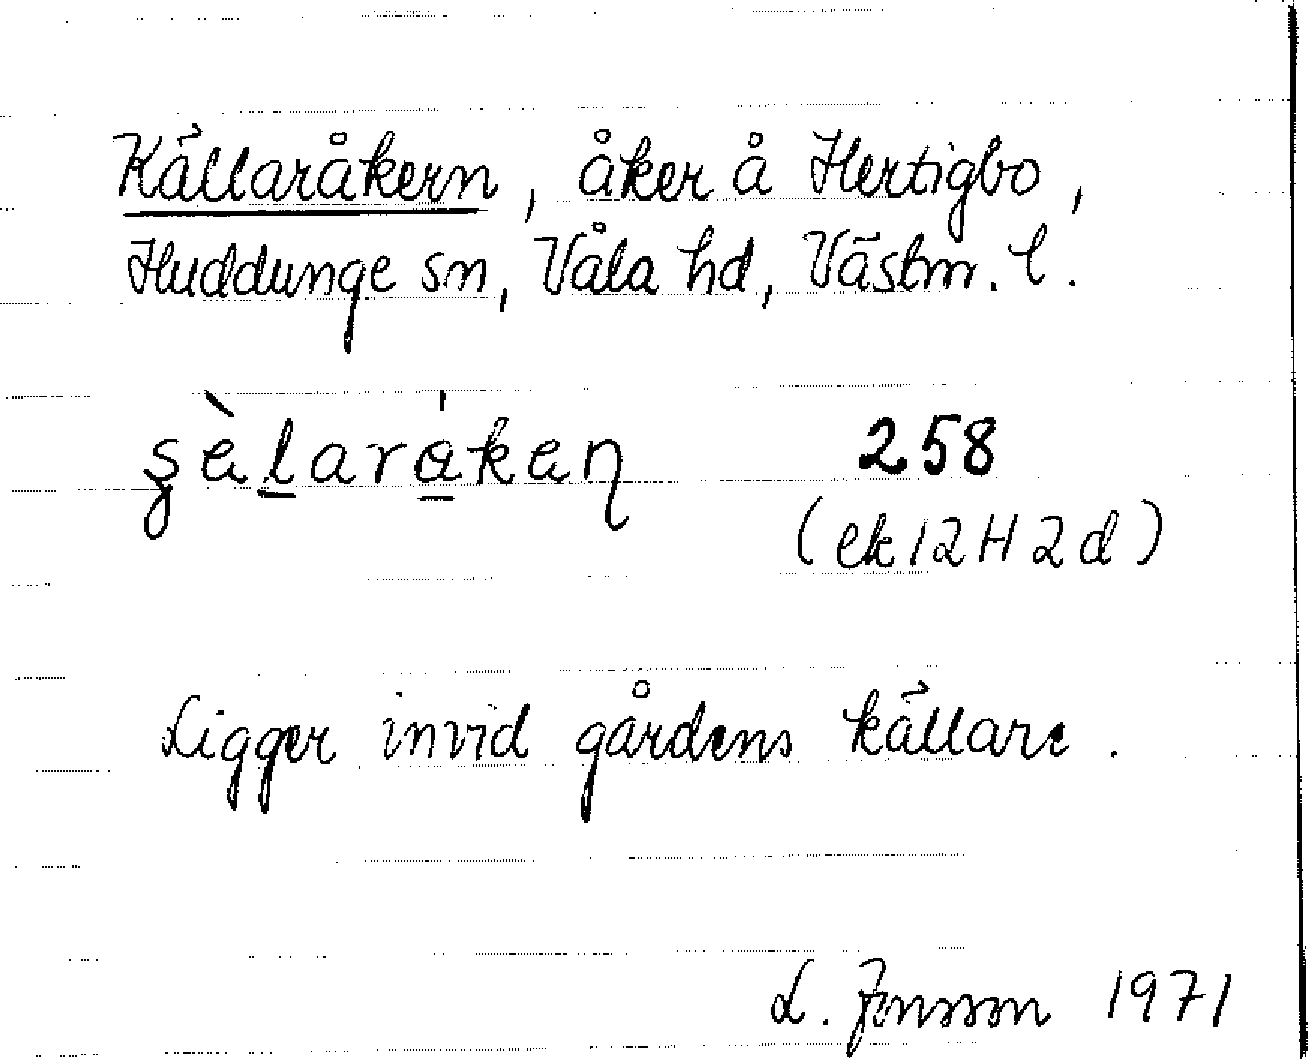 Källaråkern, åker å Hertigbo,
Huddunge sn, Våla hd, Västm. l.
258
(ek 12H2d)
Ligger invid gårdens källare.
L. Jonsson 1971